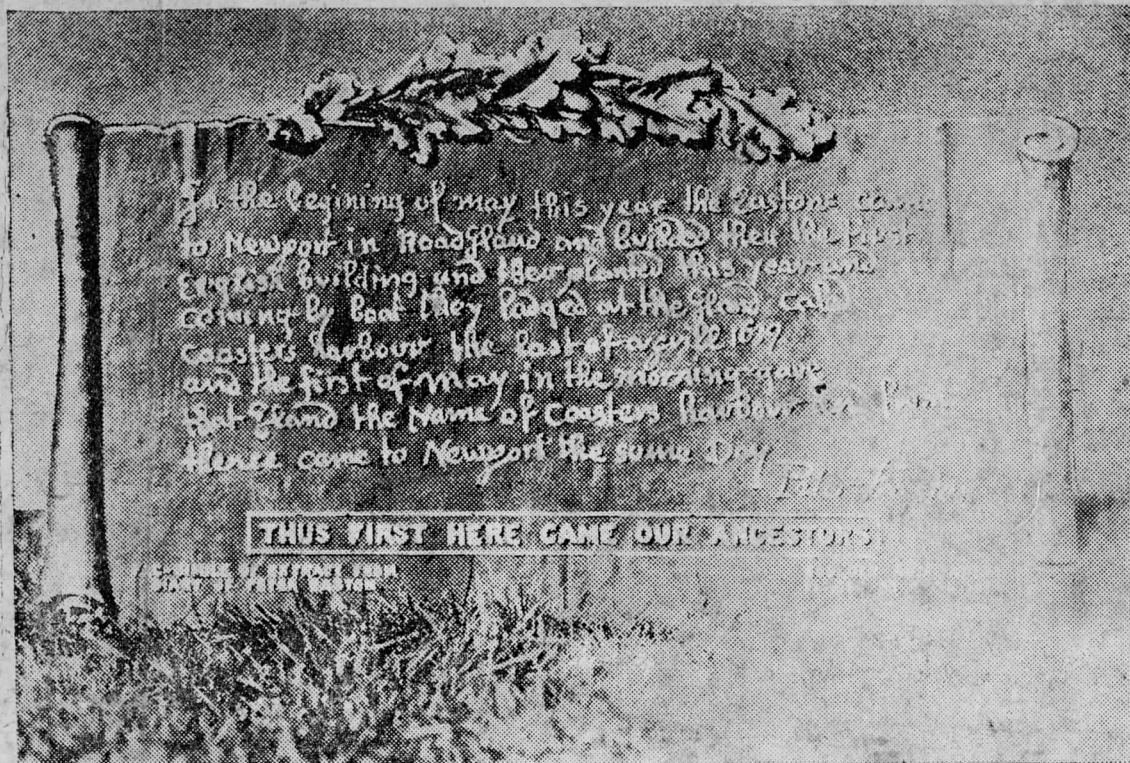 In the begining of may this year the Eastons came
to Newport in Road Island and builded then the first
English building and ther planted this year and
coming by boat they lodged at the Iland cald
Coasters harbour the last of aprile 1639
and the first of may in the morning gave
that Iland the Name of Coasters harbour and from
thence came to Newport the same Day
Peter Easton
THUS FIRST HERE CAME OUR ANCESTORS